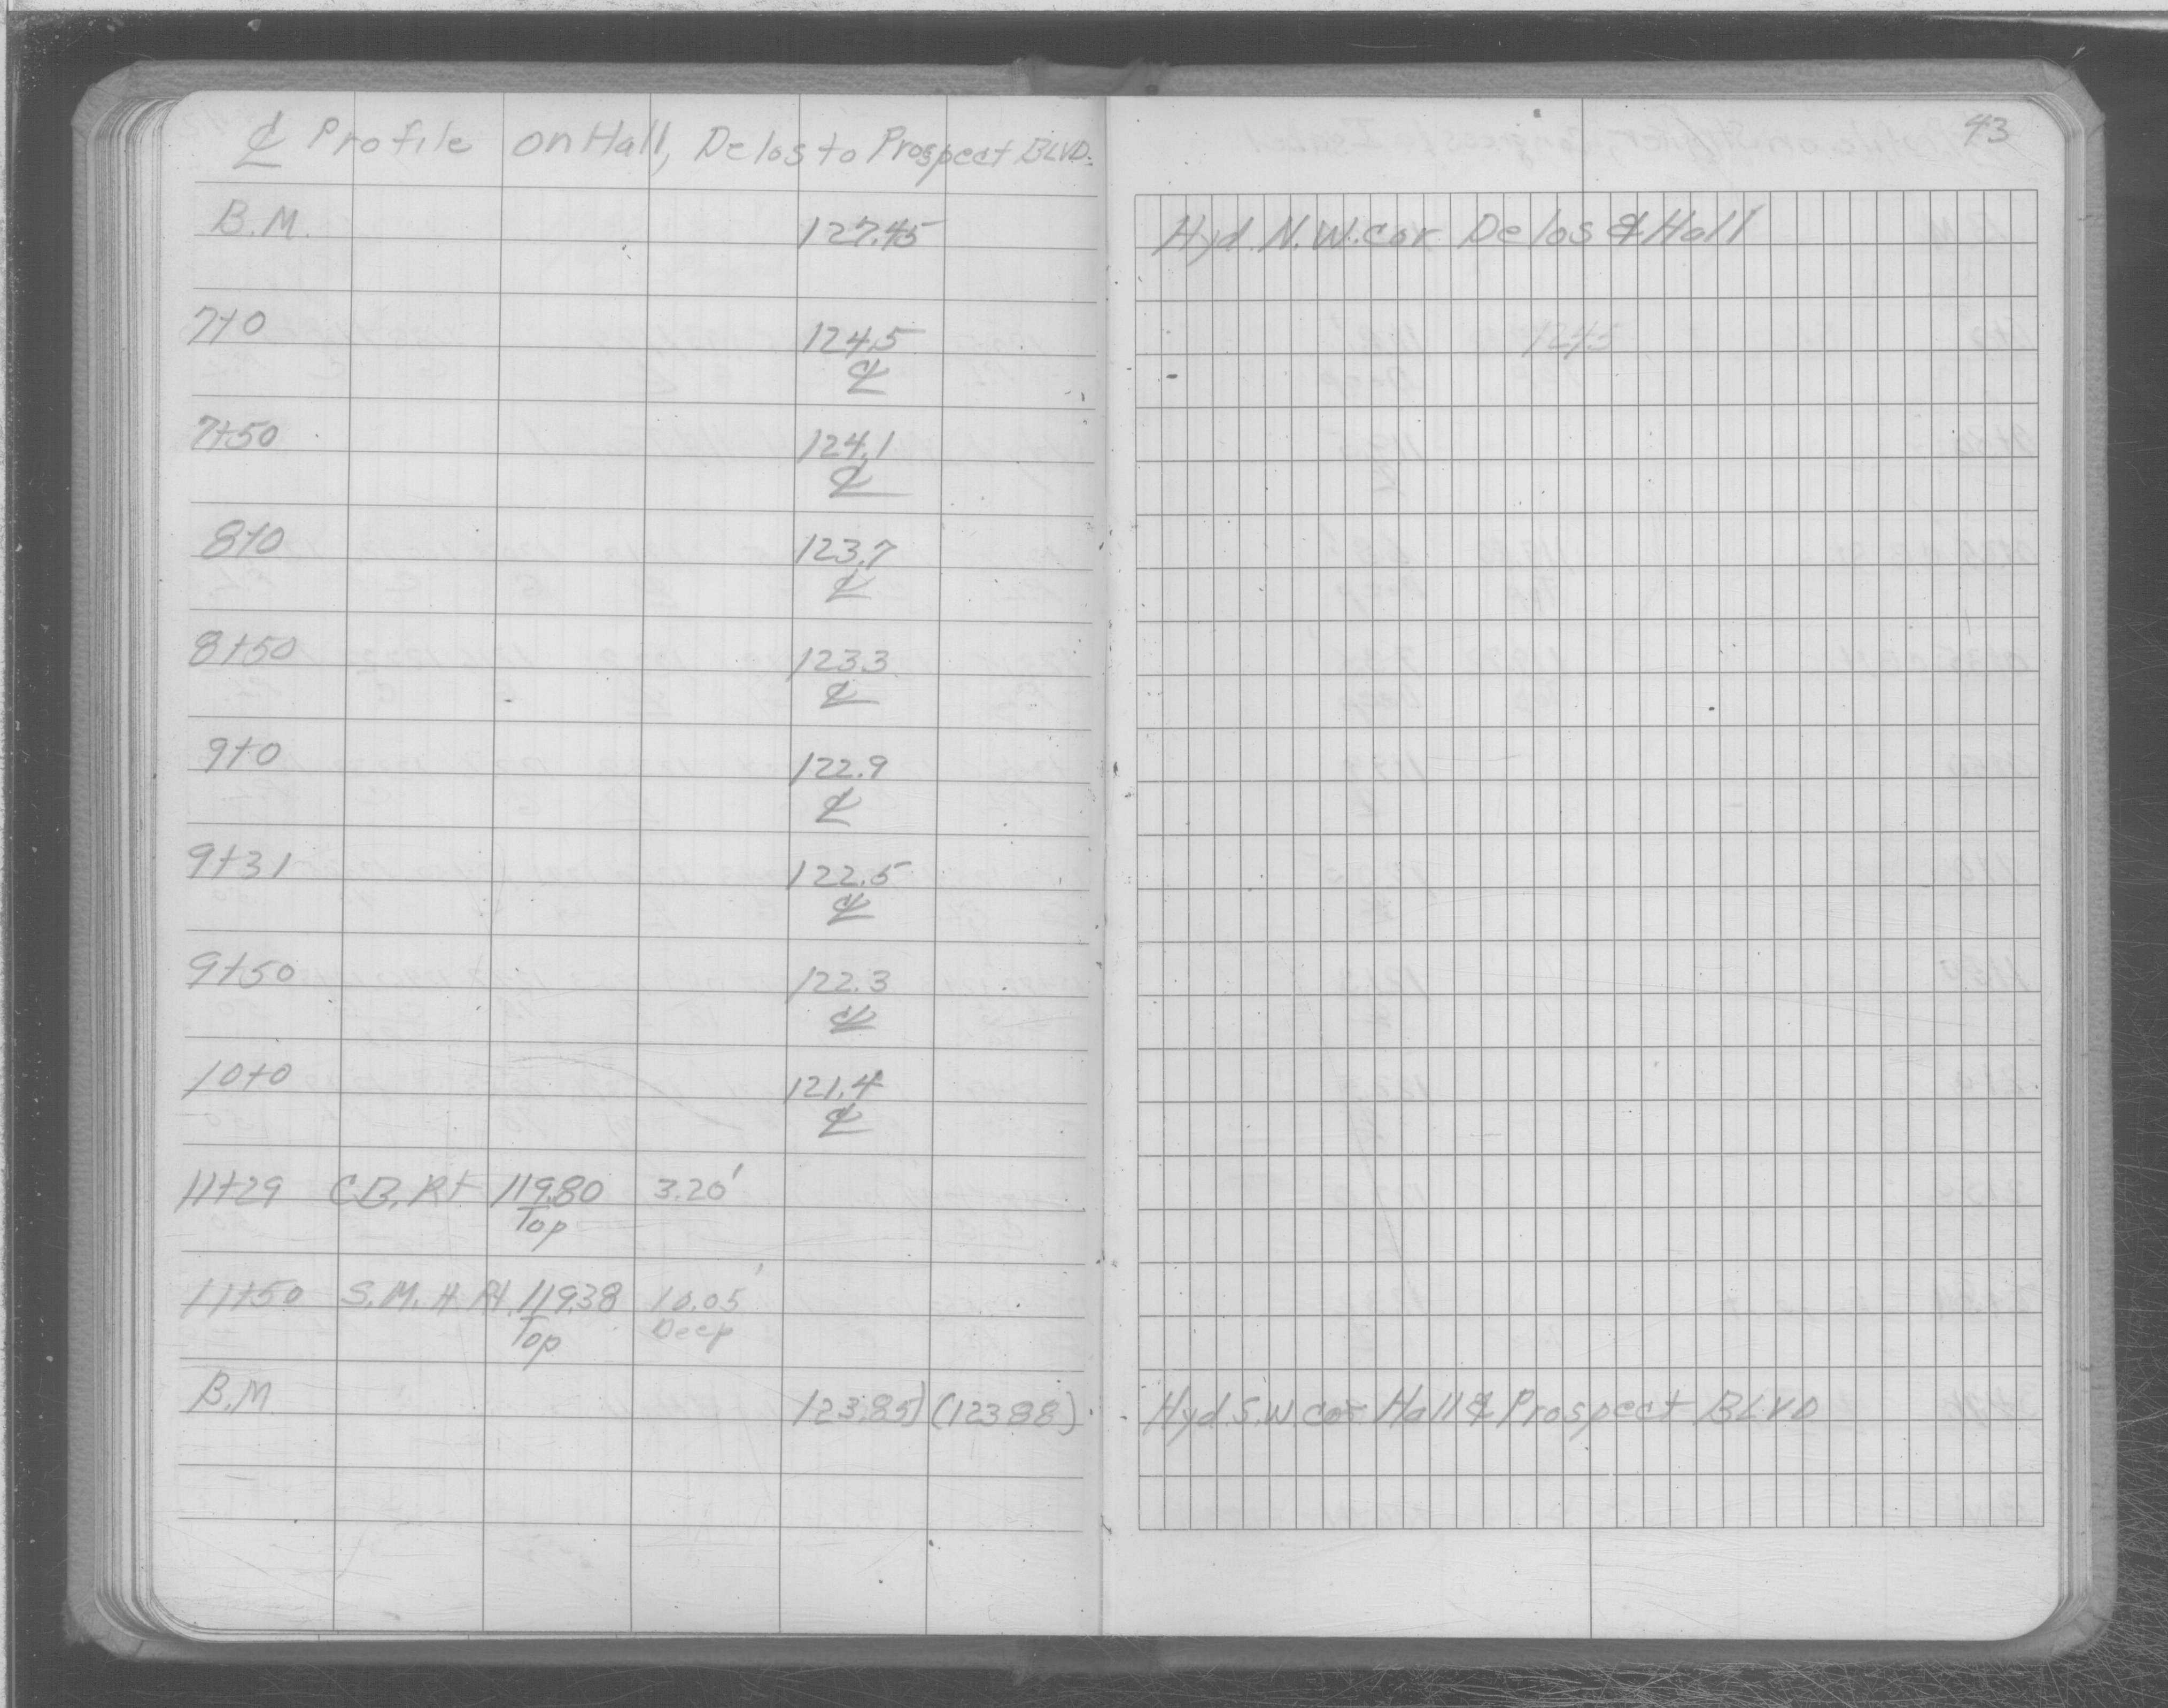 ℄ Profile on Hall, Delos to Prospect BLVD.
43
B.M. 127.45 Hyd. N.W. cor. Delos & Hall
7+0 124.5 1245
℄
7+50 124.1
℄
8+0 123.7
℄
8+50 123.3
℄
9+0 122.9
℄
9+31 122.5
℄
9+50 122.3
℄
10+0 121.4
℄
11+29 C.B. Rt 119.80 3.20'
Top
11+50 S.M.H Rt. 119.38 10.05'
Top Deep
B.M 123.85) (123.88) Hyd. S.W. cor Hall & Prospect BLVD